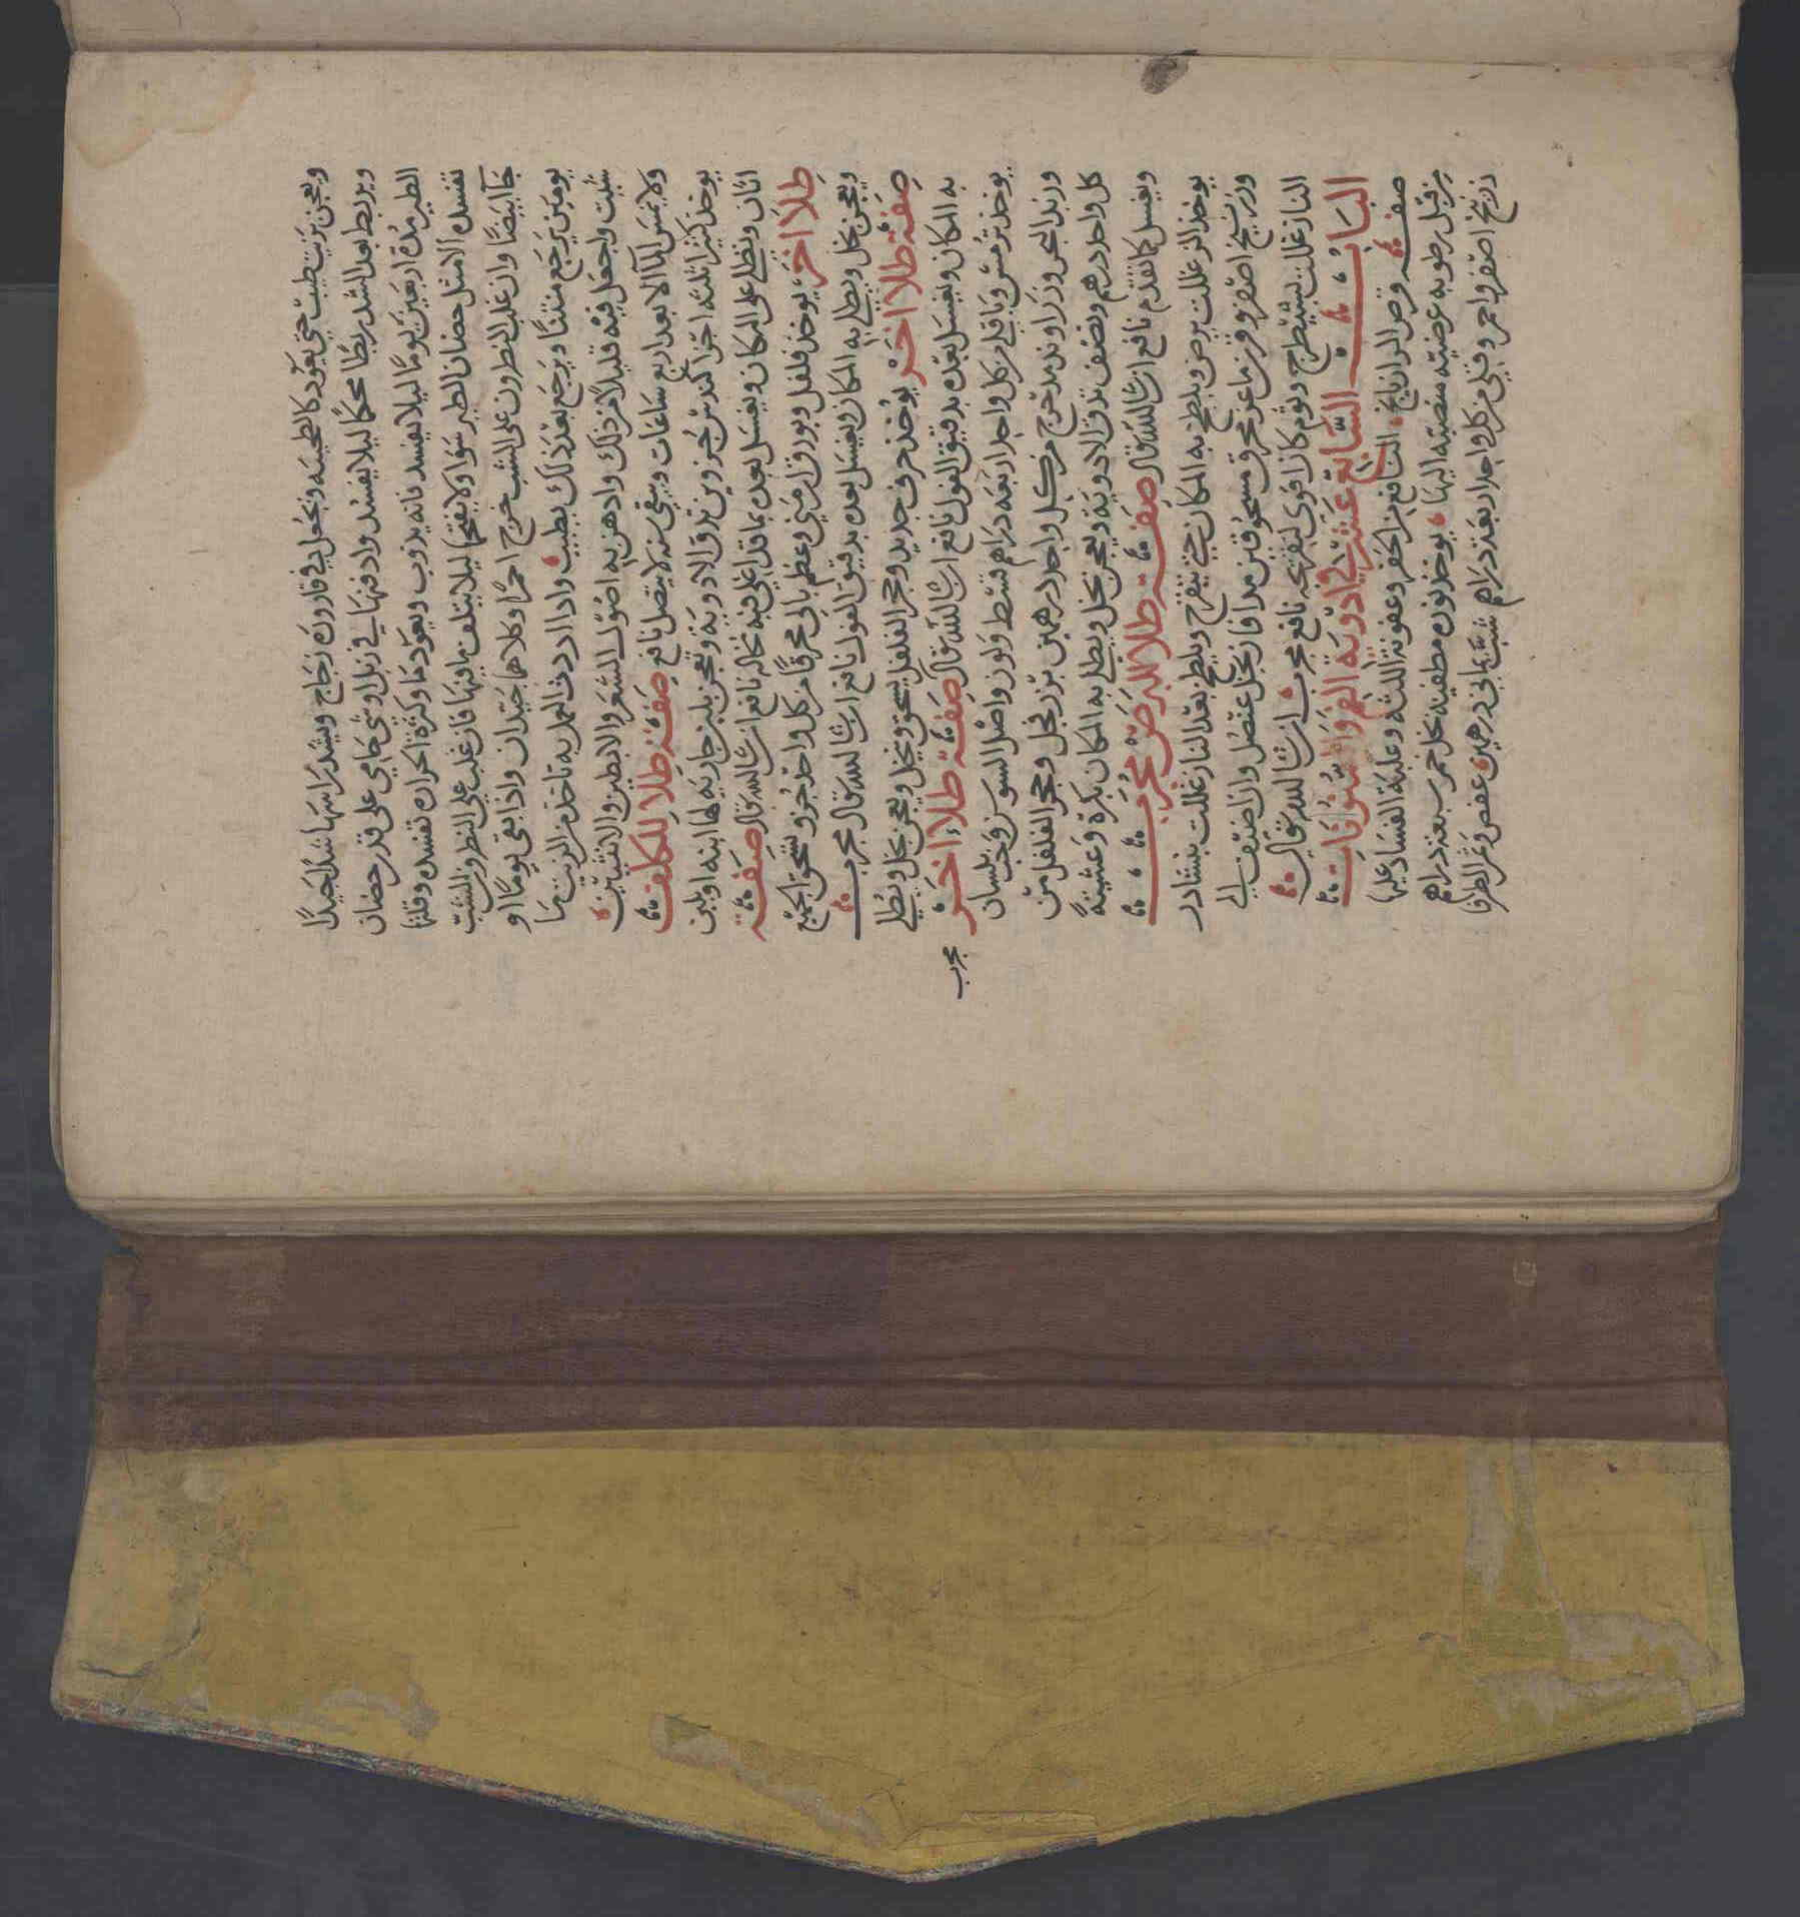 ويعجن بزيت طيب حتي يعود كالطحينه ويجعل في قارورة زجاج ويشد راسها شدا جيدا
ويربط بعد الشد ربطا محكما ليلا يفسد وادفنها في زبل اوشي حامي علي قدر حضان
الطير مدة اربعين يوما ليلا يفسد فانه يذوب ويعود ما وكثرة الحرارة تفسده وقلتها
تفسده الا مثل حضان الطير سوا ولا يفتحها ليلا يتلف مافيها فان غلب علي النطرون الشب
جا ابيضا وان غلب النطرون علي الشب خرج احمرا وكلاهما جيدان واذا بقي يوما او
يومين يرجع منتنا ويرجع بعد ذلك يطيب واذا اردت العمل به تاخذ من الزيت ما
شيت واجعل فيه قليلا من ذلك وادهن به اصول الشعر والابطين والانثيين
ولا يمس الما الا بعد اربع ساعات ويبقي سنه لا يتصل نافع صفة طلا للكلف
يوخذ كثيرا ثلثه اجزا كندس جزوين تدق الادوية وتعجن بلبن جاريه لها ابنه او بلبن
اتان ويطلي علي المكان ويغسل بعده بما قد اغلي فيه نخاله نافع ان شا الله تعالي صفة
طلا اخر يوخذ فلفل وبورق ارمني وعظم بالي محرقا من كل واحد جزو يسحق الجميع
ويعجن بخل ويطلي به المكان ويغسل بعده بدقيق الفول نافع ان شا الله تعالي مجرب
صفة طلا اخر يوخذ خرف جديد وحجر الفلفل يسحق وينخل ويعجن بخل ويطلي
به المكان ويغسل بعده بدقيق الفول نافع ان شا الله تعالي صفة طلاء اخر
مجرب
يوخذ ترمس وباقلي من كل واحد اربعه دراهم قسط ولوز واصل السوسن وحب بلسان
وزبد البحر وزراوند مدحرج من كل واحد درهمين بزر فجل وحجر الفلفل من
كل واحد درهم ونصف تدق الادوية ويعجن بخل ويطلي به المكان بكرة وعشية
ويغسل كما تقدم نافع ان شا الله تعالي صفة طلا للبرص مجرب
يوخذ الزغللت يرض ويلطخ به المكان حتي يتقرح ويلطخ بعد النار غللت بنشادر
وزرنيخ اصفر وقرن ماعز محرق مسحوقين مدافا بخل عنصل وان اضيف الي
النار غللت شيطرج وثوم كان اقوي لتقرحه نافع مجرب ان شا الله تعالي
الباب السابع عشر في ادوية الفم والسنونات
صفة قرص الزرانيخ النافع من الحفر وعفونة اللثه وغلبة الفساد عليها
من قبل رطوبه عرضيه منصبه اليها يوخذ نوره مطفيه بخل خمر سبعة دراهم
زرنيخ اصفر واحمر وقلي من كل واحد اربعة دراهم شب يماني درهمين عفص وثمر الطرفا